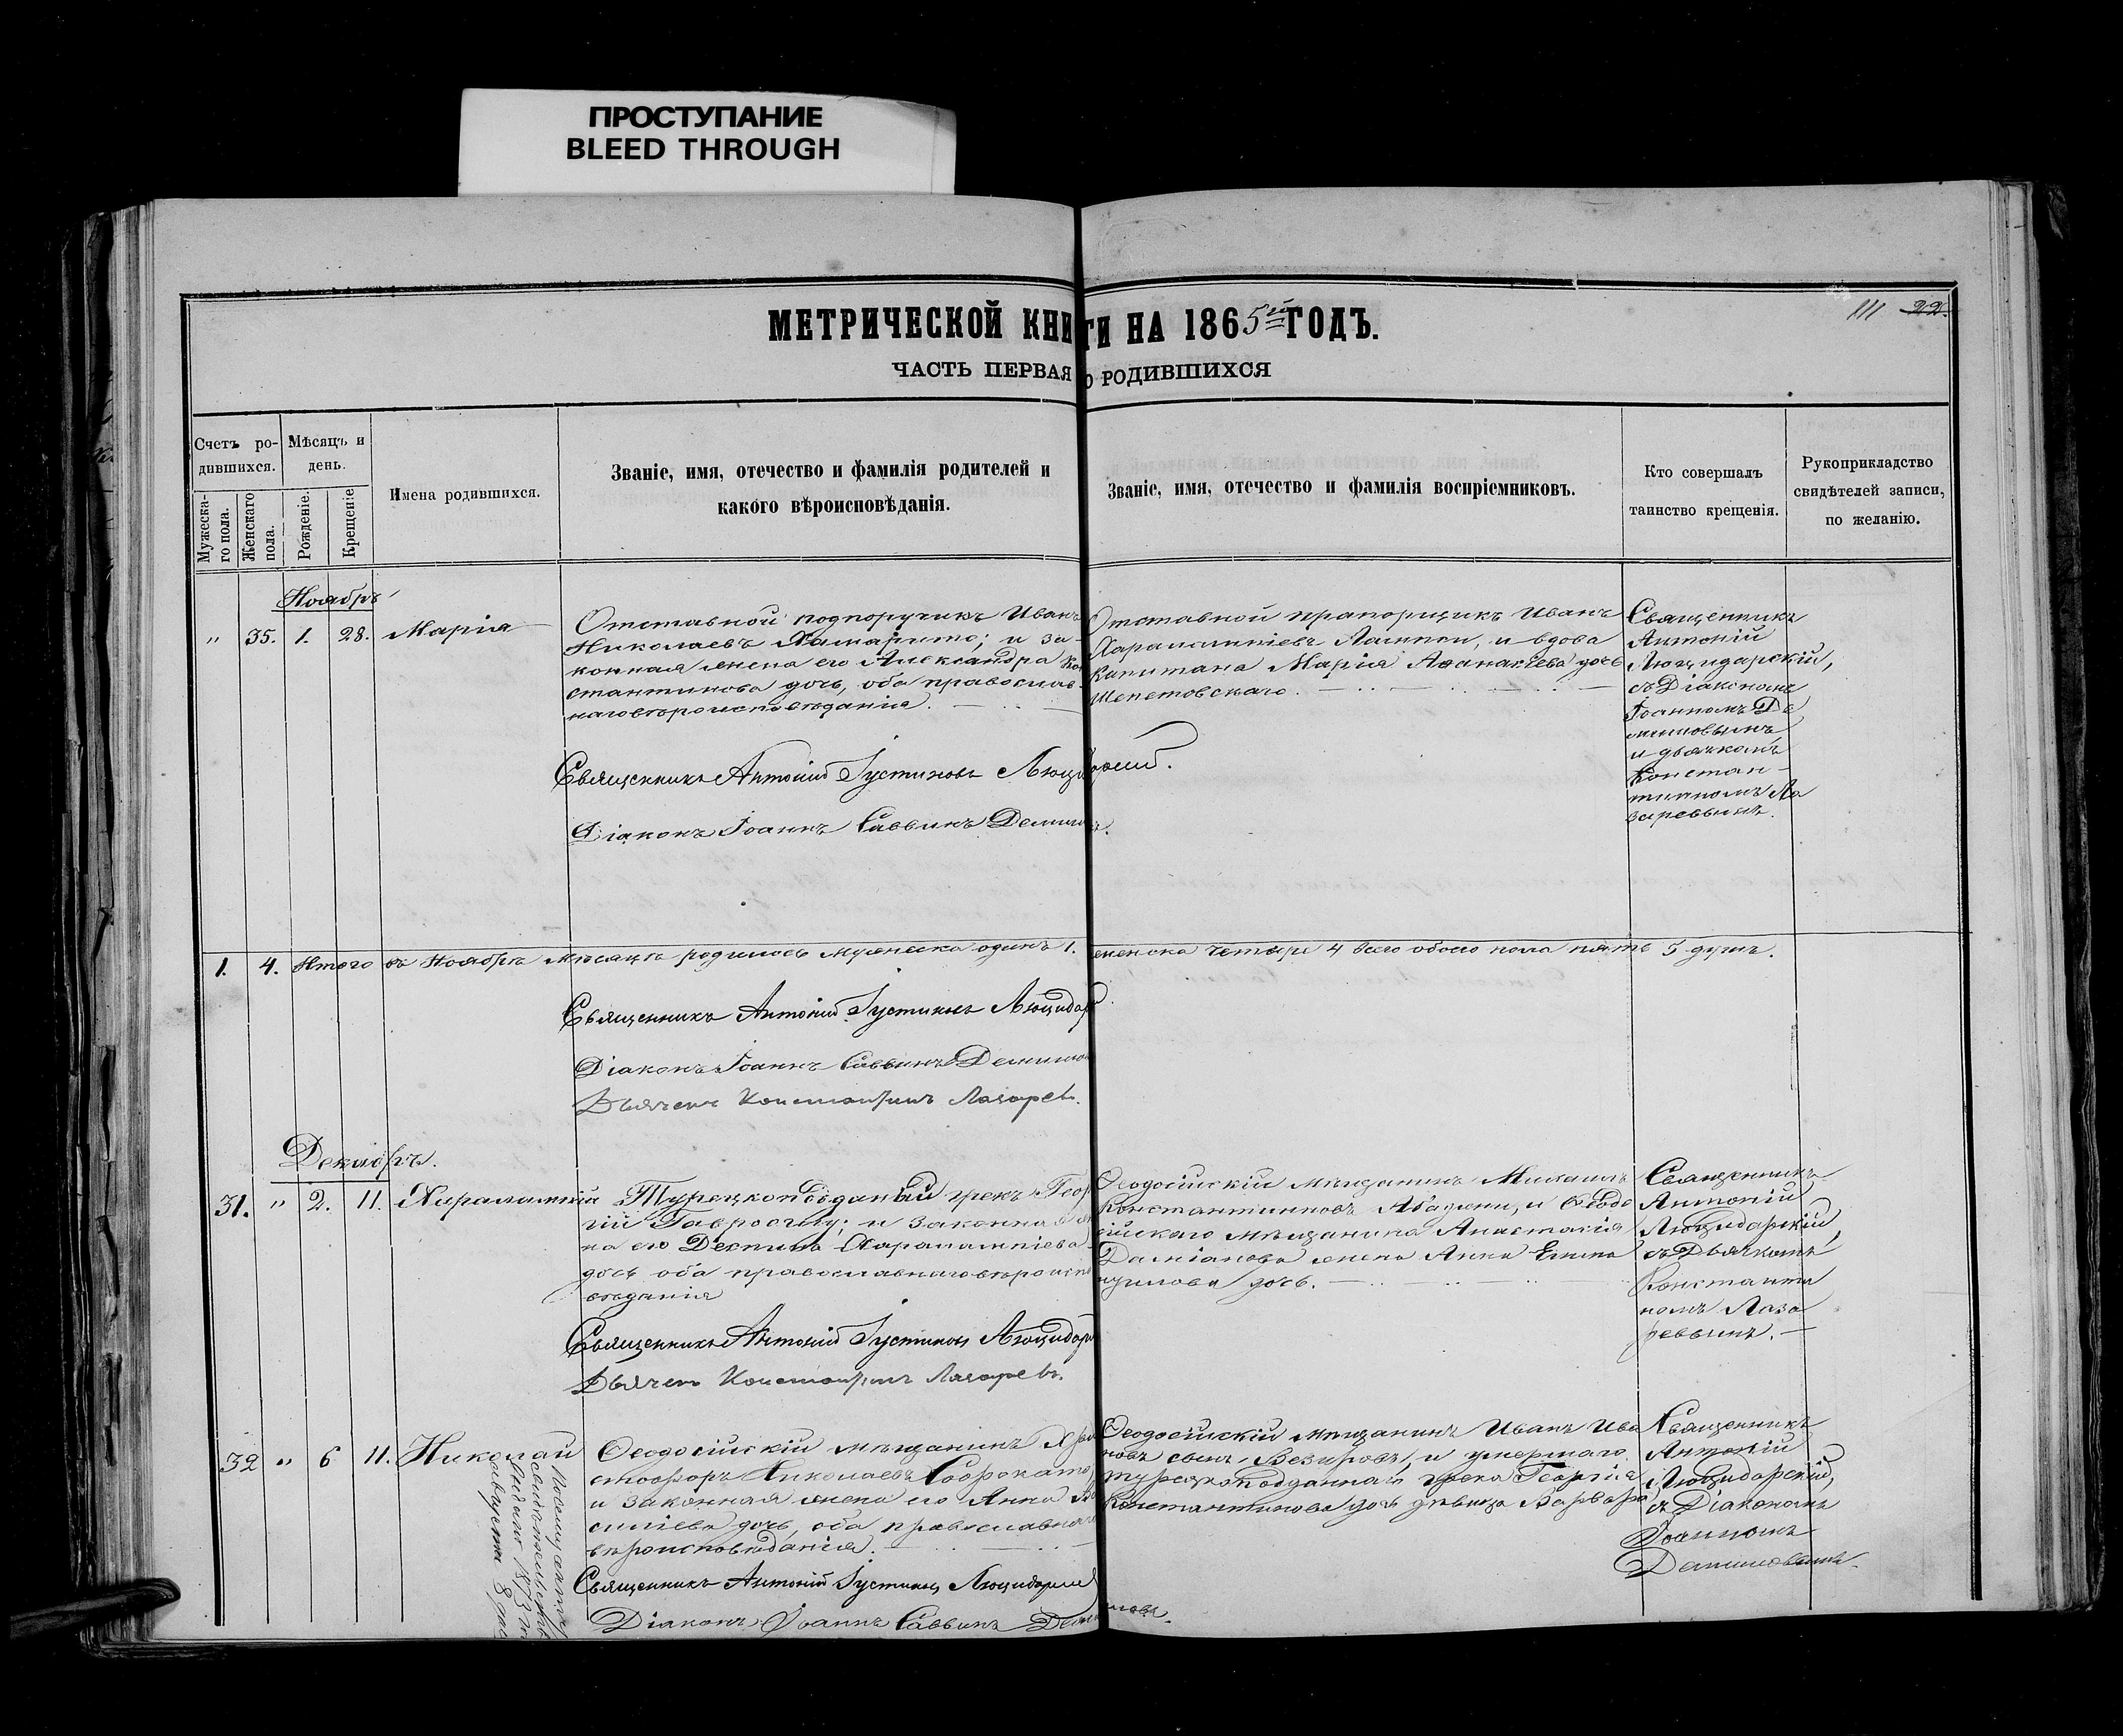 ПРОСТУПАНИЕ
BLEED THROUGH
111 22.
МЕТРИЧЕСКОЙ КНИГИ НА 1865й ГОДЪ.
ЧАСТЬ ПЕРВАЯ О РОДИВШИХСЯ
Счетъ ро-
дившихся.
Мужеска-
го пола.
Женскаго
пола.
Мѣсяцъ и
день.
Рожденіе.
Крещеніе
Имена родившихся.
Званіе, имя, отечество и фамилія родителей и
какого вѣроисповѣданія.
Званіе, имя, отечество и фамилія воспріемниковъ.
Кто совершалъ
таинство крещенія.
Рукоприкладство
свидѣтелей записи,
по желанію.
Ноябрь
" 35. 1. 28. Марія
Отставной подпоручикъ Иванъ
Николаевъ ; и за-
конная жена его Александра Кон
стантинова дочь, оба православ-
наго вѣроисповѣданія.
Отставной прапорщикъ Иванъ
Харалампіевъ Лампси, и вдова
Капитана Марія Аѳанасіева дочь
Шепетовскаго.
Священникъ
Антоній
Люцидарскій,
съ Діакономъ
Іоанномъ Де
миновымъ
и дьячкомъ
Констан-
тиномъ Ла
заревымъ.
Священникъ Антоній Іустиновъ Люцидарскій.
Діаконъ Іоаннъ Саввинъ Деминовъ.
1. 4. Итого въ Ноябрѣ мѣсяцѣ родилось мужеска одинъ 1. женска четыре 4 всего обоего пола пять 5 душъ.
Священникъ Антоній Іустиновъ Люцидар
Діаконъ Іоаннъ Саввинъ Деминов
Дьячекъ Константинъ Лазаревъ.
Декабрь.
31. " 2. 11. Харалампій
Турецкоподданый грекъ Геор
гій ; и законная же
на его Деспина Харалампіева
дочь оба православнаго вѣроиспо
вѣданія
Ѳеодосійскій мѣщанинъ Михаилъ
Константиновъ , и Ѳеодо
сійскаго мѣщанина Анастасія
Даміанова жена Анна
дочь.
Священникъ
Антоній
Люцидарскій,
съ Дьячкомъ
Константи
номъ Лаза
ревымъ.
Священникъ Антоній Іустиновъ Люцидар
Дьячекъ Константинъ Лазаревъ.
32 " 6 11. Николай
Ѳеодосійскій мѣщанинъ Хри
стофоръ Николаевъ
и законная жена его Анна Ва
силіева дочь, оба православнаго
вѣроисповѣданія.
Ѳеодосійскій мѣщанинъ Иванъ Ива
новъ сынъ Везировъ, и умершаго
турецкоподданнаго грека Георгія
Константинова дочь дѣвица Варвара
Священникъ
Антоній
Люцидарскій,
съ Діакономъ
Іоанномъ
Деминовымъ.
Священникъ Антоній Іустиновъ Люцидарскій
Діаконъ Іоаннъ Саввинъ Деминовъ.